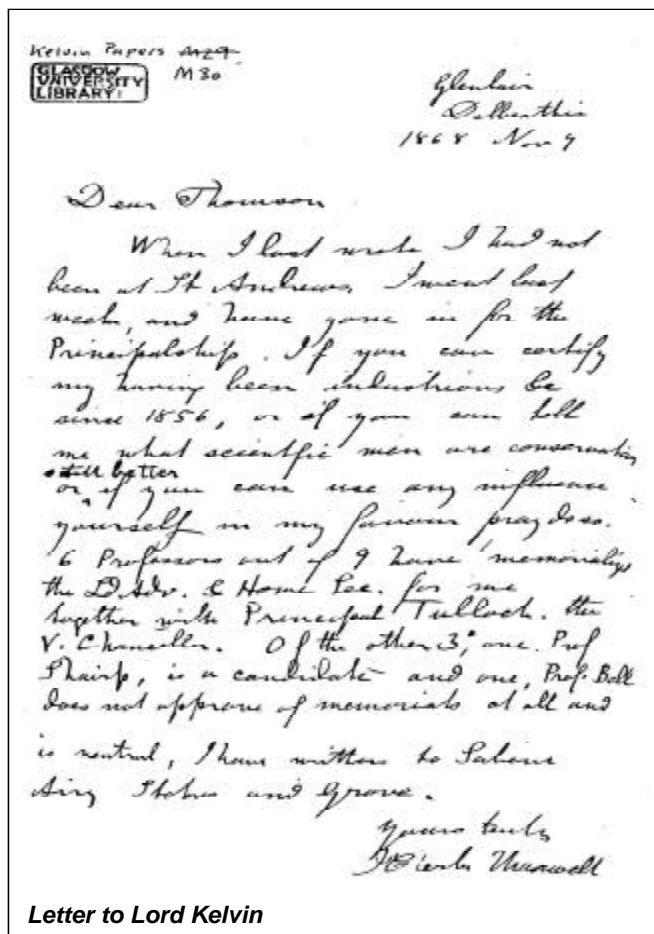 Kelvin Papers M29
GLASGOW
UNIVERSITY
LIBRARY
M30
Glenlair
Dalbeattie
1868 Nov 9
Dear Thomson
When I last wrote I had not
been at St Andrews. I went last
week, and have gone in for the
Principalship. If you can certify
my having been industrious &c
since 1856, or if you can tell
me what scientific men are conservative
still better
or if you can use any influence
yourself in my favour pray do so.
6 Professors out of 9 have memorialised
the Ld Adv. & Home Sec. for me
together with Principal Tulloch. the
V. Chancellor. Of the other 3, one, Prof
Shairp, is a candidate and one, Prof. Bell
does not approve of memorials at all and
is neutral, I have written to Sabine
Airy Stokes and Grove.
Yours truly
J Clerk Maxwell
Letter to Lord Kelvin